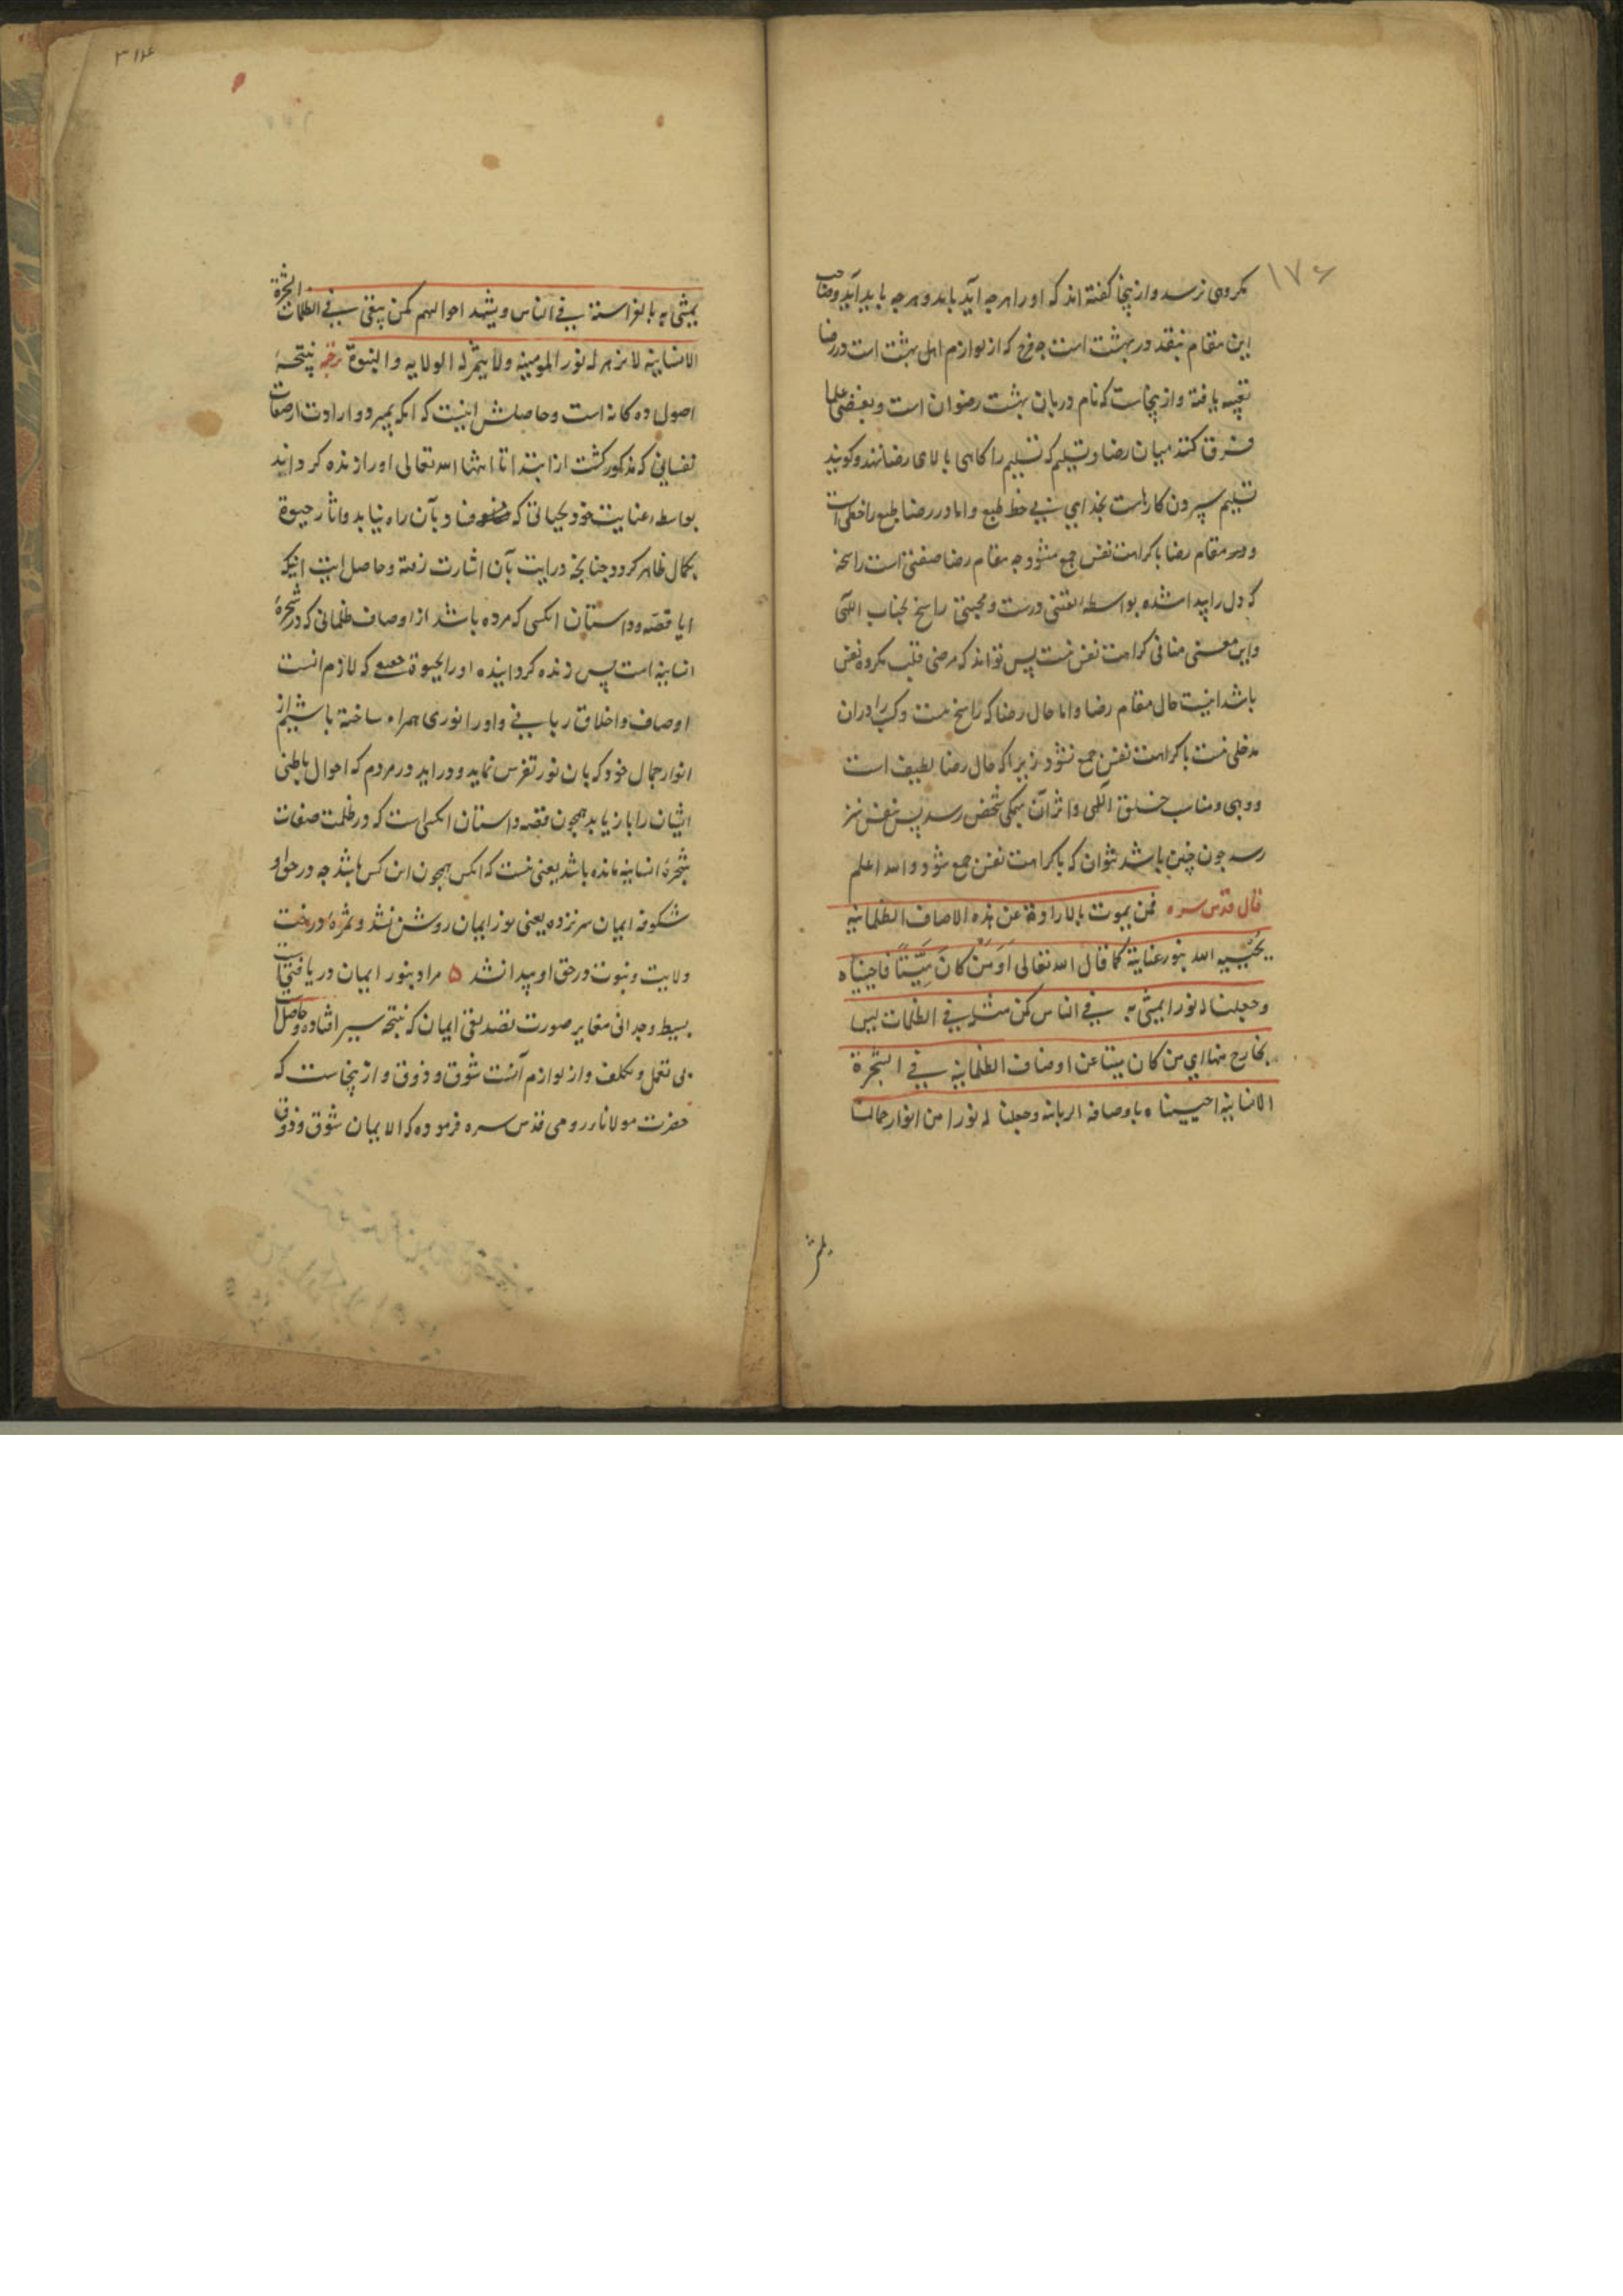 ۱۷۶
مکروهی نرسد و ازینجا گفته اند که او را هرچه آید باید و هرچه باید آید و صاحب
این مقام بنقد در بهشت است چه فرح که از لوازم اهل بهشت است در رضا
تعبیه یافته و ازینجاست که نام دربان بهشت رضوان است و بعضی علما
فرق کنند میان رضا و تسلیم که تسلیم را کاهی بالای رضا نهند و کویند
تسلیم سپردن کارهاست بخدای بی حظ طبع و اما در رضا طبع را حظی است
و مقام رضا با کراهت نفس جمع شود چه مقام رضا صفتی است راسخه
که دل را پیدا شده بواسطه الفتی درست و محبتی راسخ بجناب الهی
و این معنی منافی کراهت نفس نیست پس تواند که مرضی قلب مکروه نفس
باشد اینست حال مقام رضا و اما حال رضا که راسخ نیست و کسب را در ان
مدخلی نیست با کراهت نفس جمع نشود زیرا که حال رضا لطیف است
و وهبی و مناسب خلق الهی و اثر آن بهمکی شخص رسد پس بنفس نیز
رسد چون چنین باشد نتوان که با کراهت نفس جمع شود و الله اعلم
قال قدس سره فمن یموت بالارادة عن هذه الاصاف الظلمانیه
یحییه الله بنور عنایة کما قال الله تعالی أَوَمَنْ کَانَ مَیِّتًا فاحییناه
وجعلنا له نورا یمشی به فی الناس کمن مثله فی الظلمات لیس
بخارج منها ای من کان میتا عن اوصاف الظلمانیه فی الشجرة
الانسانیه احییناه باوصافه الربانه وجعلنا له نورا من انوار جمالنا
۳۱۴
یمشی به بالفراسة فی الناس ویشهد احوالهم کمن یبقی فی الظلمات الشجرة
الانسانیه لا نزهر له نور المومنیه ولا یثمر له الولایه والنبوة نتیجه
اصول ده کانه است و حاصلش اینست که انکه بمیرد و ارادت از صفات
نفسانی که مذکور کشت از ابتدا تا انتها الله تعالی او را زنده کرداند
بواسطه عنایت خود بحیاتی که فنا و بآن راه نیابد و اثار حیوة
بکمال ظاهر کردد چنانچه در ایت بآن اشارت رفته و حاصل ایت انیکه
ایا قصه و داستان انکسی که مرده باشد از اوصاف ظلمانی که در شجرهٔ
انسانیه است پس زنده کردانیده او را بحیوة که لازم انست
اوصاف و اخلاق ربانی و او را نوری همراه ساخته باشیم از
انوار جمال خود که بان نور تفرس نماید و دراید در مردم که احوال باطنی
ایشان را باز یابد همچون قصه و داستان انکسی است که در ظلمت صفات
شجرهٔ انسانیه مانده باشد یعنی نیست که انکس همچون این کس باشد چه در حق او
شکوفه ایمان سر نزده یعنی نور ایمان روشن نشد و ثمرهٔ درخت
ولایت و نبوت در حق او پیدا نشد ۵ مراد بنور ایمان دریافتی است
بسیط وجدانی مغایر صورت تصدیقی ایمان که نتیجه سیر افتاده و حاصل
بی تعمل و تکلف و از لوازم آنست شوق و ذوق و ازینجاست که
حضرت مولانا رومی قدس سره فرموده که الایمان شوق و ذوق